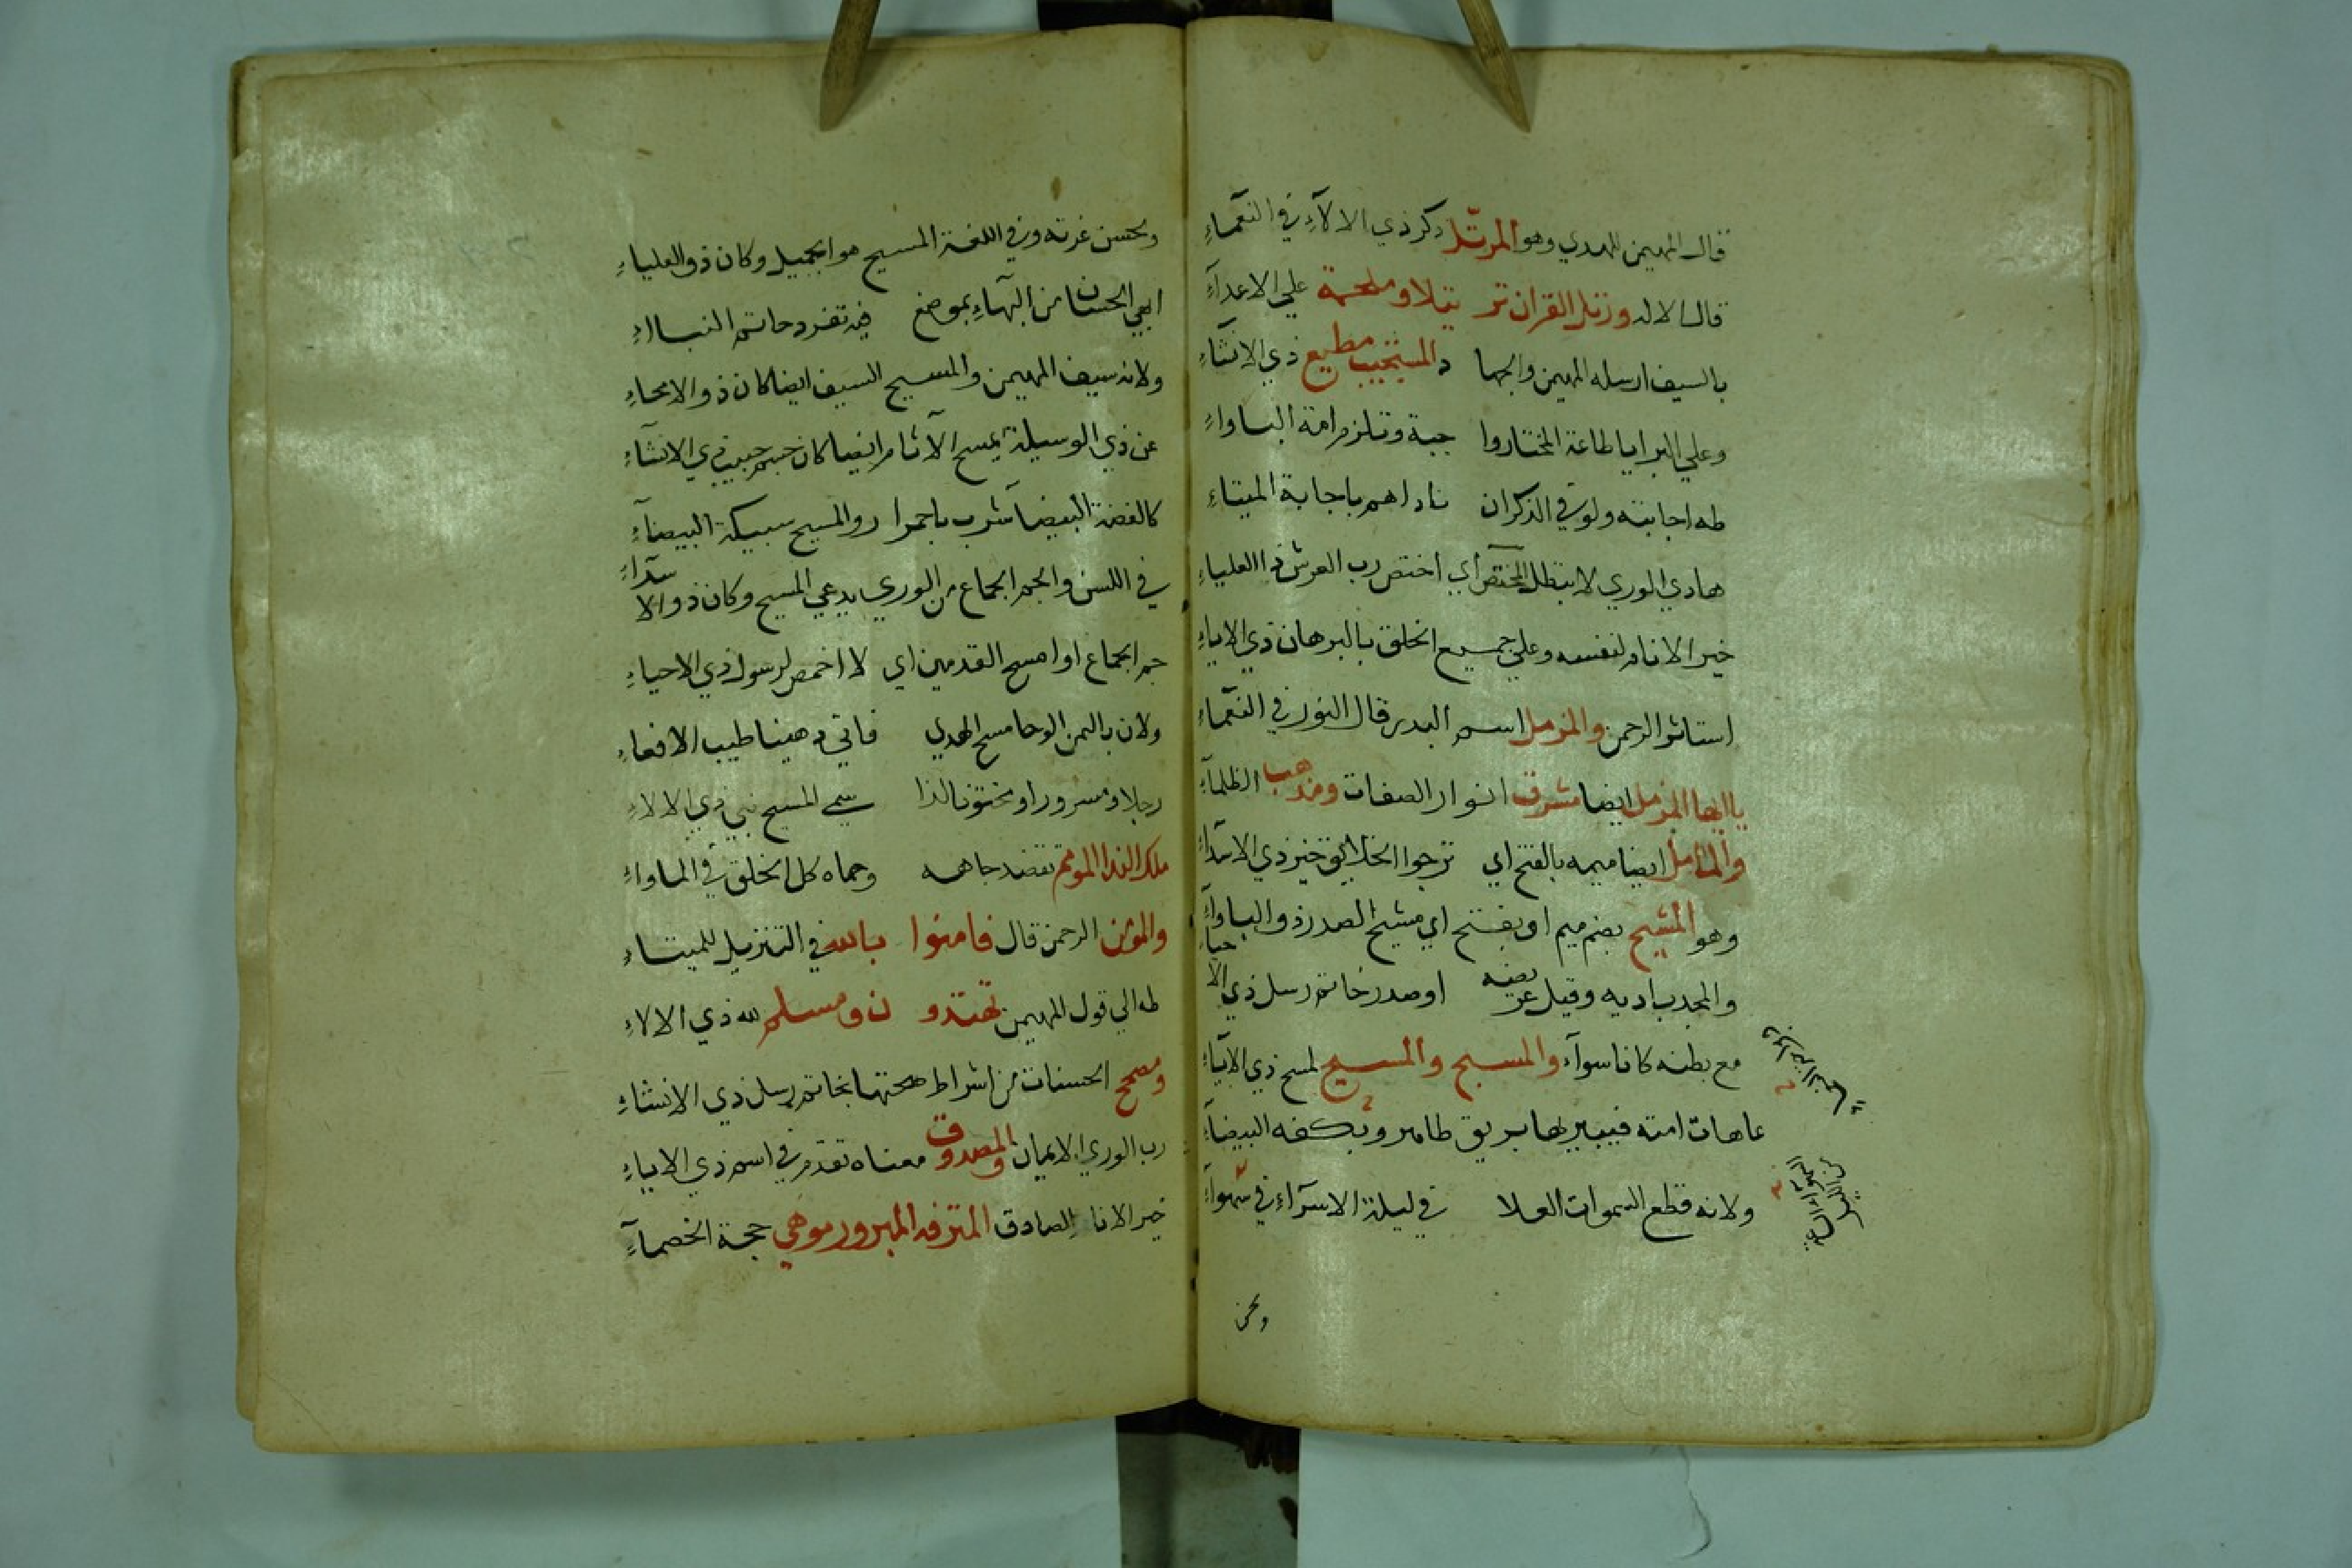 قال المهيمن للهدي وهو المرتل ذكر ذي الالآء في النعماء
قال الاله ورتل القران تر تيلا وملحمة علي الاعدآء
بالسيف ارسله المهيمن والجها د المستجيب مطيع ذي الانشآء
وعلي البرايا طاعة المختار وا جبة وتلزم امة الباواء
طه اجابته ولو في الذكر ان ناداهم باجابة الميتاء
هادي الوري لا تبطل المختص اي اختص رب العرش ذا العلياء
خير الانام لنفسه وعلي جميع الخلق بالبرهان ذي الاياء
استاثر الرحمن والمزمل اسم البدر قال النور في النعماء
يا ايها المزمل ايضا مشرق انوار الصفات ومذهب الظلمآء
والمامل ايضا ميمه بالفتح اي ترجوا الخلايق خير ذي الابدآء
وهو المشيح بضم ميم او بفتح اي مشيح الصدر ذو الباوآء
والمجد باديه وقيل عريضه او صدر خاتم رسل ذي الاحياء
مع بطنه كانا سوآء والمسيح والمسيح لمسح ذي الايتآء
عاهات امته فيبريها بريق طاهر وبكفه البيضآء
ولانه قطع السموات العلا في ليلة الاسرآء في شهوآء
وبحسن
وبحسن غرته وفي اللغة المسيح هو الجميل وكان ذو العلياء
ابهي الحسان من البهآء بموضع فيه تفرد خاتم النبااء
ولانه سيف المهيمن والمسيح السيف ايضا كان ذو الامحاء
عن ذي الوسيلة يمسح الآثام ايضا كان جسم حبيب ذي الانشآء
كالفضة البيضآ شرب باحمرا ر والمسيح سبيكة البيضآء
في اللسن والجم الجماع من الوري يدعي المسيح وكان ذو الاسدآء
جم الجماع او امسح القدمين اي لا اخمص لرسول ذي الاحياء
ولان باليمن الوحا مسح الهدي فاتي دهينا طيب الافعاء
رجلا ومسرورا ومختونا لذا سمي المسيح نبي ذي الالاء
ملك الندا الموتم تقصد جاهه وحماه كل الخلق في الماواء
والمؤمن الرحمن قال فامنوا بالله في التنزيل للميتاء
طه الي قول المهيمن تهتدو ن ومسلم لله ذي الالاء
ومصحح الحسنات من اشراط صحتها بخاتم رسل ذي الانشاء
رب الوري الايمان والمصدوق معناه تقدم في اسم ذي الاياء
خير الانام الصادق المترفه المبرور موهي حجة الخصمآء